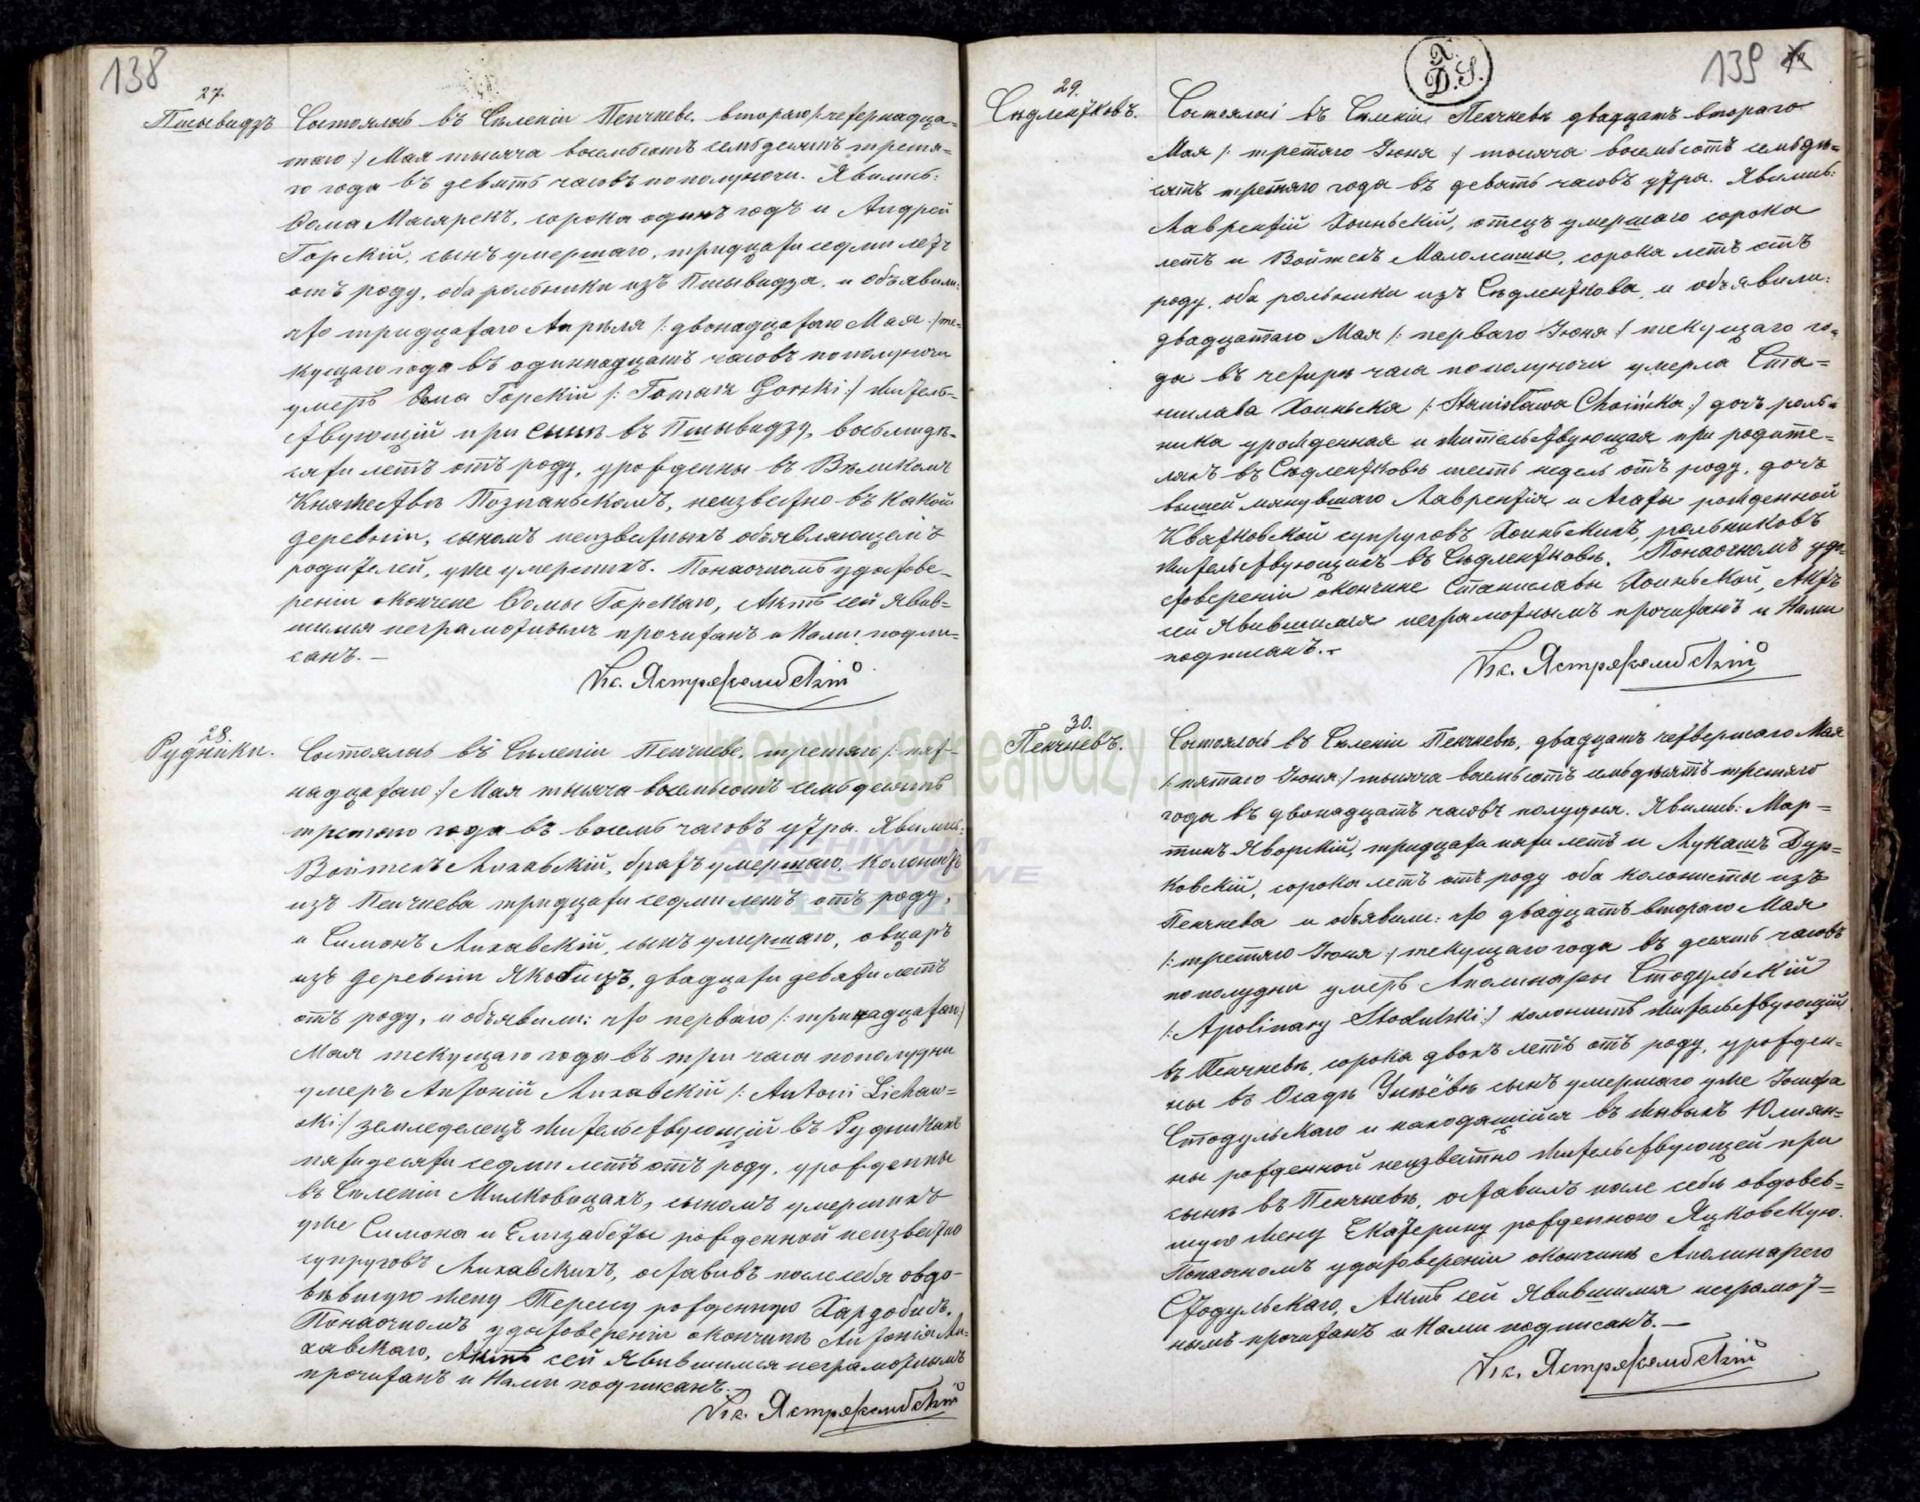 138
27.
Псывидзъ
Состоялось въ Селеніи Пенчневе, второго /: четернадца-
таго :/ Мая тысяча восемьсотъ семьдесятъ третя-
го года въ девять часовъ по полуночи. Явились:
Ѳома Магярекъ, сорока одинъ годъ и Андрей
Горскій, сынъ умершаго, тридцати седми летъ
отъ роду, оба рольники изъ Псывидза, и объявили:
что тридцатаго Апреля /: двонадцатаго Мая :/ те-
кущаго года въ одиннадцать часовъ по полуночи
умеръ Ѳома Горскій /: Tomasz Gorski :/ житель-
ствующій при сыне въ Псывидзу, восьмиде-
сяти летъ отъ роду, урожденны въ Великомъ
Княжестве Познаньскомъ, неизвестно въ какой
деревни, сыномъ неизвестныхъ объявляющемъ
родителей, уже умершихъ. Понаочномъ удостове-
реніи окончене Ѳомы Горскаго, Актъ сей явив-
шимся неграмотнымъ прочитанъ и Нами подпи-
санъ. —
Кс. Ястржембскій
28.
Рудники.
Состоялось въ Селеніи Пенчневе, третяго /: пят-
надцатаго :/ Мая тысяча восемьсотъ семьдесятъ
третяго года въ восемь часовъ утра. Явились:
Войтехъ Лихавскій, братъ умершаго, колонистъ
изъ Пенчнева тридцати седми летъ отъ роду,
и Симонъ Лихавскій, сынъ умершаго, овчаръ
изъ деревни Якобицъ, двадцати девяти летъ
отъ роду, и объявили: что перваго /: тринадцатаго :/
Мая текущаго года въ три часа по полудни
умеръ Антоній Лихавскій /: Antoni Lichaw-
ski :/ земледелецъ жительствующій въ Рудникахъ
пятидесяти седми летъ отъ роду, урожденны
въ Селеніи Милковицахъ, сыномъ умершихъ
уже Симона и Елизабеты рожденной неизвестно
супруговъ Лихавскихъ, оставивъ после себя овдо-
вевшую жену Терезу рожденную
Понаочномъ удостовереніи окончине Антонія Ли-
хавскаго, Актъ сей явившимся неграмотнымъ
прочитанъ и Нами подписанъ. —
Кс. Ястржембскій
Д. S.
139
29.
Седлентковъ.
Состоялось въ Селеніи Пенчневе двадцать второго
Мая /: третяго Іюня :/ тысяча восемьсотъ семьде-
сятъ третяго года въ девять часовъ утра. Явились:
Лаврентій Хоиньскій, отецъ умершаго сорока
летъ и Войтехъ Маломеши, сорока летъ отъ
роду, оба рольники изъ Седленткова, и объявили:
двадцатаго Мая /: перваго Іюня :/ текущаго го-
да въ четыре часа по полуночи умерла Ста-
нислава Хоиньска /: Stanisława Choińska :/ дочъ роль-
ника урожденная и жительствующая при родите-
ляхъ въ Седлентковe шесть недель отъ роду, дочъ
вышей мянувшаго Лаврентія и Агаты рожденной
Квятковской супруговъ Хоиньскихъ, рольниковъ
жительствующихъ въ Седлентковe. Понаочномъ удо-
стовереніи окончине Станиславы Хоиньской, Актъ
сей явившимся неграмотнымъ прочитанъ и Нами
подписанъ. —
Кс. Ястржембскій
30.
Пенчневъ.
Состоялось въ Селеніи Пенчневе, двадцать четвертаго Мая
/: пятаго Іюня :/ тысяча восемьсотъ семьдесятъ третяго
года въ двонадцать часовъ полудня. Явились: Мар-
тинъ Яворскій, тридцати пяти летъ и Лукашъ Дур-
ковскій, сорока летъ отъ роду оба колонисты изъ
Пенчнева и объявили: что двадцать второго Мая
/: третяго Іюня :/ текущаго года въ десять часовъ
по полудни умеръ Аполинары Стодульскій
/: Apolinary Stodulski :/ колонистъ жительствующій
въ Пенчневе, сорока двохъ летъ отъ роду, урожден-
ны въ Осаде Унеёве сынъ умершаго уже Іозефа
Стодульскаго и находящійся въ живыхъ Юлиян-
ны рожденной неизвестно жительствующей при
сыне въ Пенчневе, оставилъ после себе овдовев-
шую жену Екатерину рожденною Яцковскую.
Понаочномъ удостовереніи окончине Аполинарего
Стодульскаго, Актъ сей явившимся неграмот-
нымъ прочитанъ и Нами подписанъ. —
Кс. Ястржембскій
metryki.genealodzy.pl
ARCHIWUM
PAŃSTWOWE
W ŁODZI